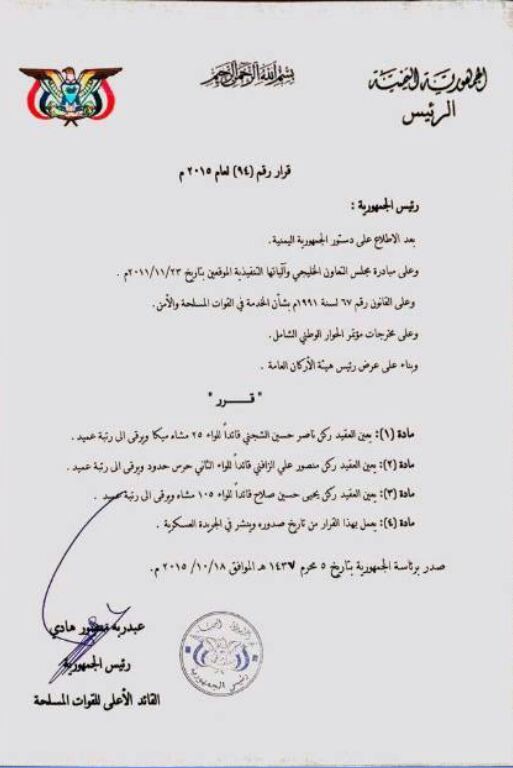 بسم الله الرحمن الرحيم
الجمهورية اليمنية
الرئيس
قرار رقم (٩٤) لعام ٢٠١٥ م
رئيس الجمهورية :
بعد الاطلاع على دستور الجمهورية اليمنية.
وعلى مبادرة مجلس التعاون الخليجي وآلياتها التنفيذية الموقعين بتاريخ ٢٠١١/١١/٢٣م .
وعلى القانون رقم ٦٧ لسنة ١٩٩١م بشأن الخدمة في القوات المسلحة والأمن.
وعلى مخرجات مؤتمر الحوار الوطني الشامل.
وبناء على عرض رئيس هيئة الأركان العامة .
" قـــرر "
مادة (١): يعين العقيد ركن ناصر حسين الشجني قائداً للواء ٢٥ مشاه ميكا ويرقى الى رتبة عميد .
مادة (٢): يعين العقيد ركن منصور علي الزافني قائداً للواء الثاني حرس حدود ويرقى الى رتبة عميد .
مادة (٣): يعين العقيد ركن يحيى حسين صلاح قائداً للواء ١٠٥ مشاه ويرقى الى رتبة عميد .
مادة (٤): يعمل بهذا القرار من تاريخ صدوره وينشر في الجريدة العسكرية .
صدر برئاسة الجمهورية بتاريخ ٥ محرم ١٤٣٧ هـ الموافق ٢٠١٥/١٠/١٨ م.
عبدربه منصور هادي
رئيس الجمهورية
القائد الأعلى للقوات المسلحة
رئيس الجمهورية